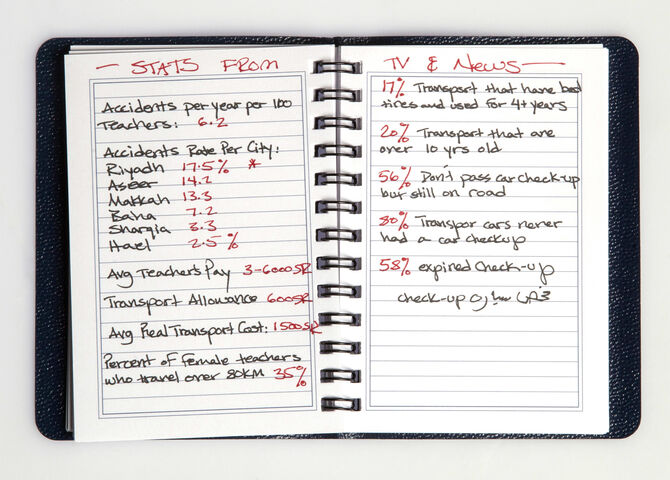 — STATS FROM
Accidents per year per 100
Teachers: 6.2
Accidents Rate Per City:
Riyadh 17.5% *
Aseer 14.2
Makkah 13.3
Baha 7.2
Sharqia 3.3
Hael 2.5%
Avg Teachers Pay 3-6000SR
Transport Allowance 600SR
Avg Real Transport Cost: 1500SR
Percent of female teachers
who travel over 80KM 35%
TV & NEWS —
17% Transport that have bad
tires and used for 4+ years
20% Transport that are
over 10 yrs old
56% Don't pass car check-up
but still on road
30% Transpor cars never
had a car checkup
58% expired check-up
check-up